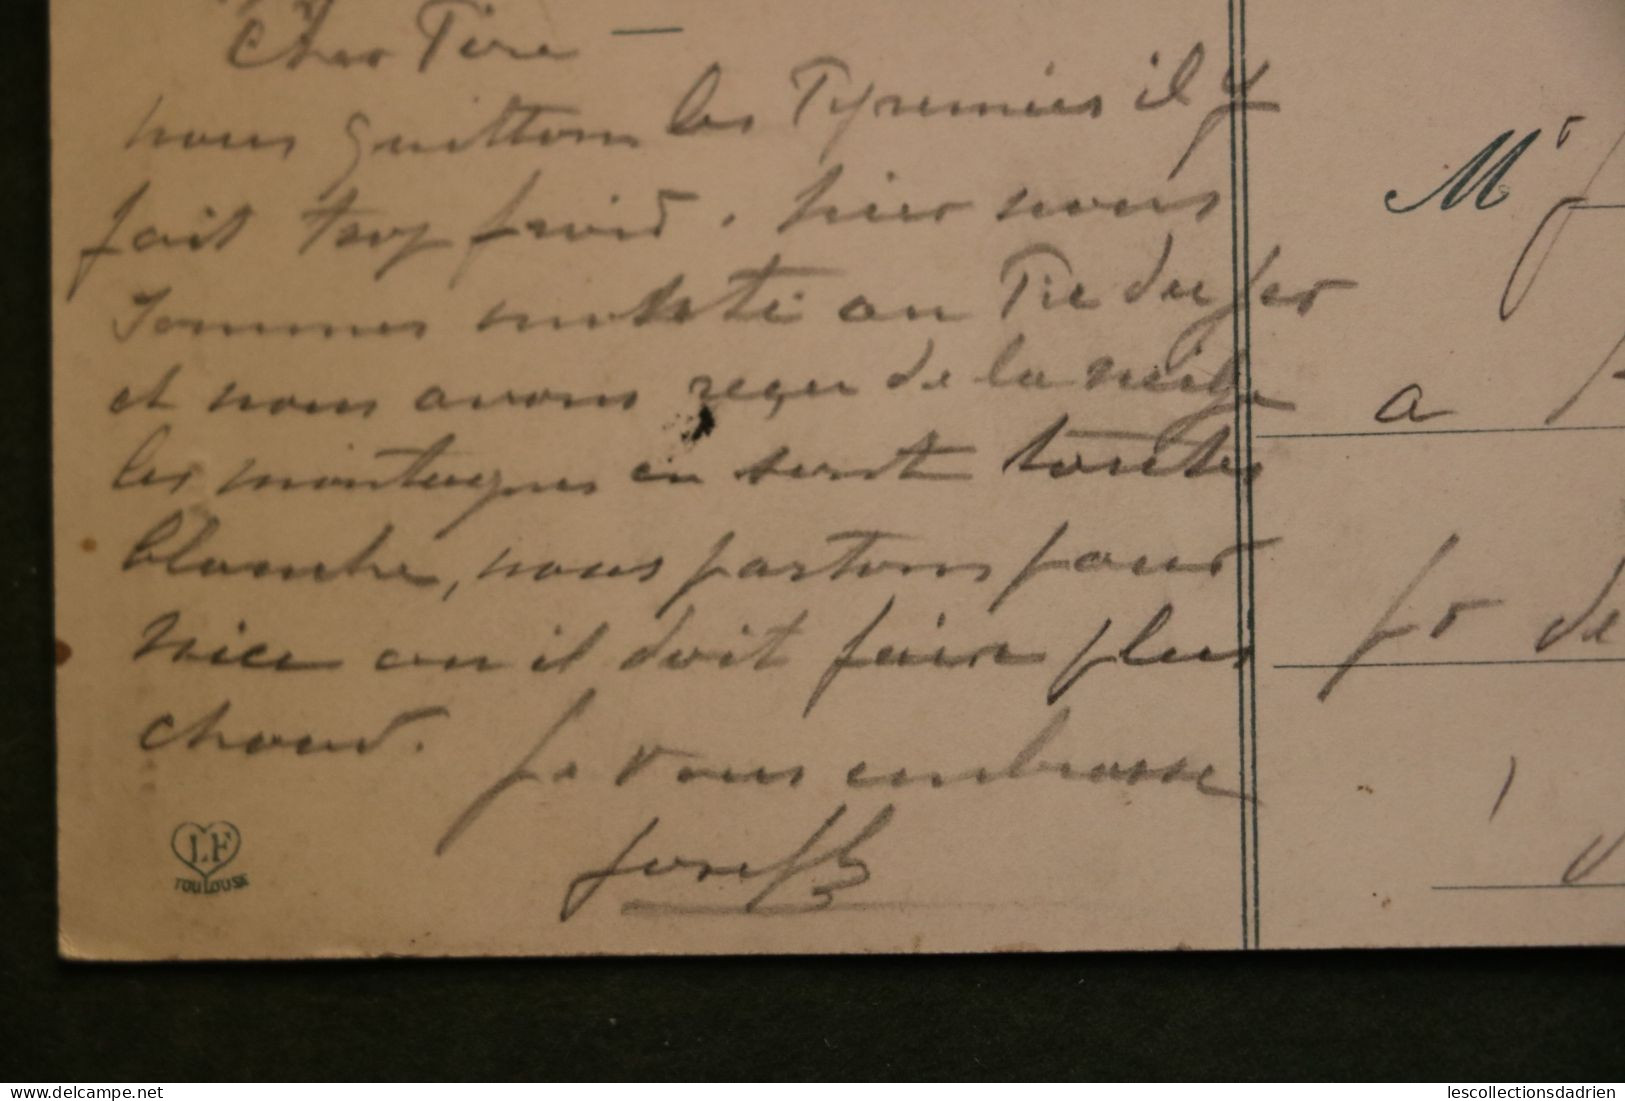 Cher Père —
nous quittons les Pyrennées il y
fait trop froid. hier nous
sommes monté au Pic du Ger
et nous avons reçu de la neige
les montagnes en sont toutes
blanche, nous partons pour
Nice ou il doit faire plus
chaud. Je vous embrasse
Joseph
LF
TOULOUSE
Mr
a
de
lescollectionsdadrien